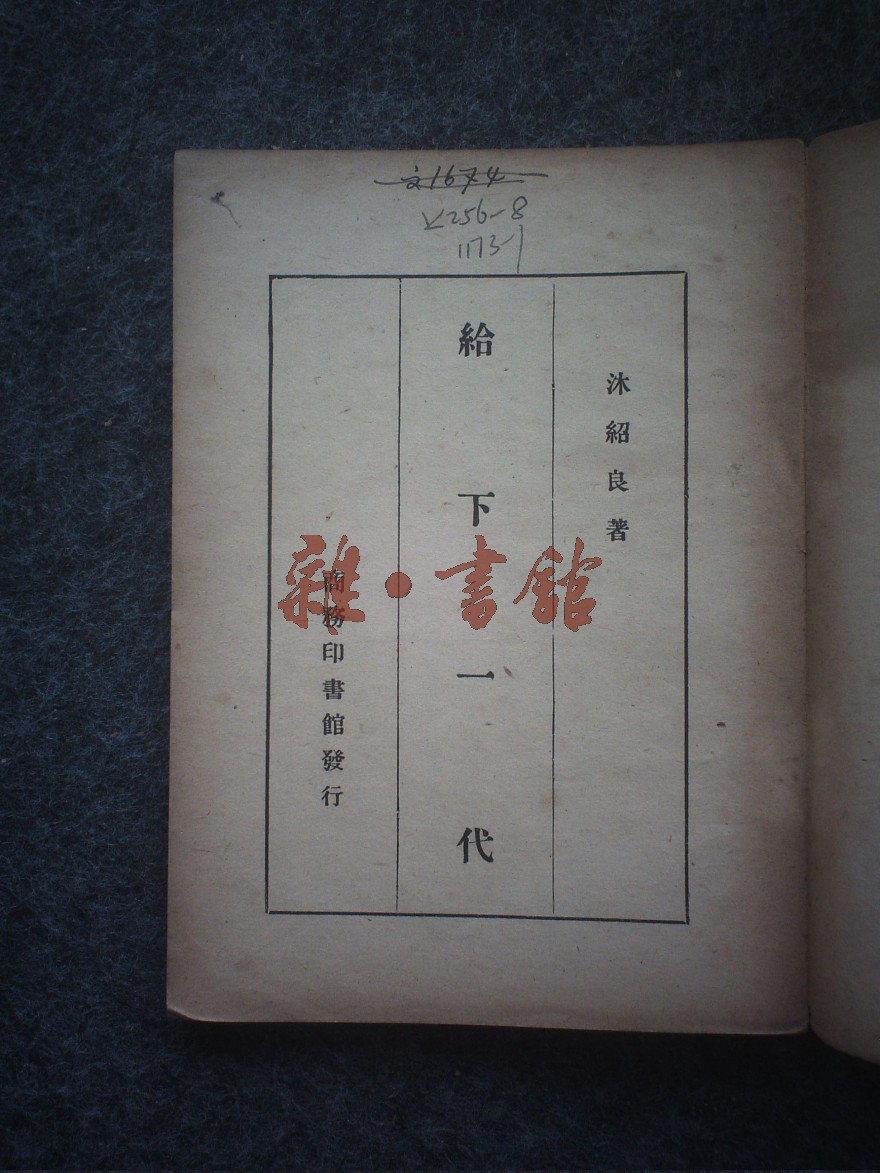 文1674
K256-8
1173-1
沐紹良著
給下一代
商務印書館發行
雜·書館